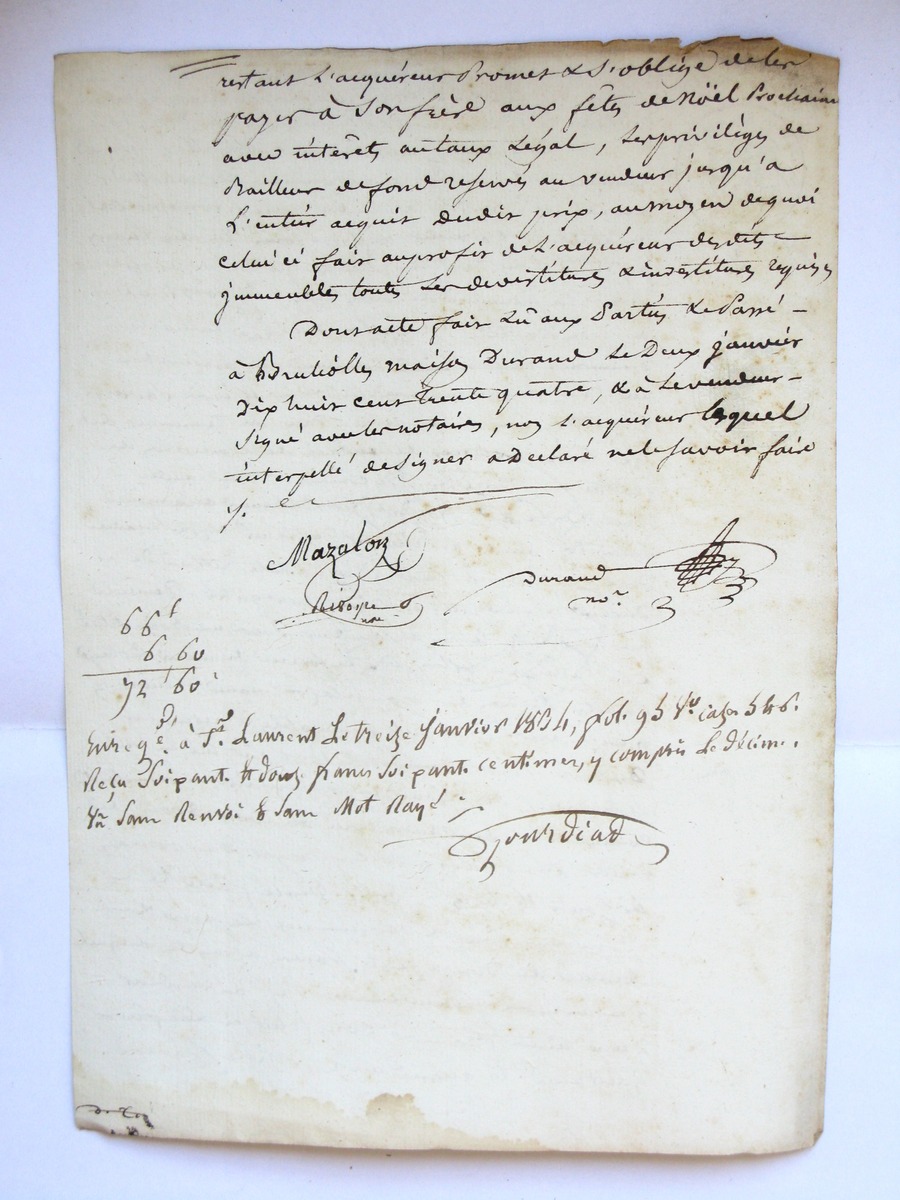 restant L'acquéreur Promet & S'oblige de les
payer à son frère aux fêtes de Nöel Prochaine
avec intérêts au taux Légal, les privilèges de
Bailleur de fond reservés au vendeur jusqu'a
L'entier acquit dudit prix, au moyen de quoi
celui ci fait au profit de L'acquéreur desdits
jmmeubles toutes Les devestitures & investitures requises
Dont acte fait Lu aux Parties & Passé
à Brulliolles maison Durand Le Deux janvier
Dix huit cent trente quatre, & à Le vendeur
signé avec les notaires, non L'acquéreur lequel
interpellé de signer a Déclaré ne le savoir faire
Mazalon
Durand
nore
not.
66 f
6 60
72 60
Enregé. à St. Laurent Le treize Janvier 1834, fol. 95 Vo cazes 5 & 6.
Reçu Soixante & douze francs soixante centimes, y compris Le décime.
Sans Renvoi & Sans Mot Rayé
Gourdiat